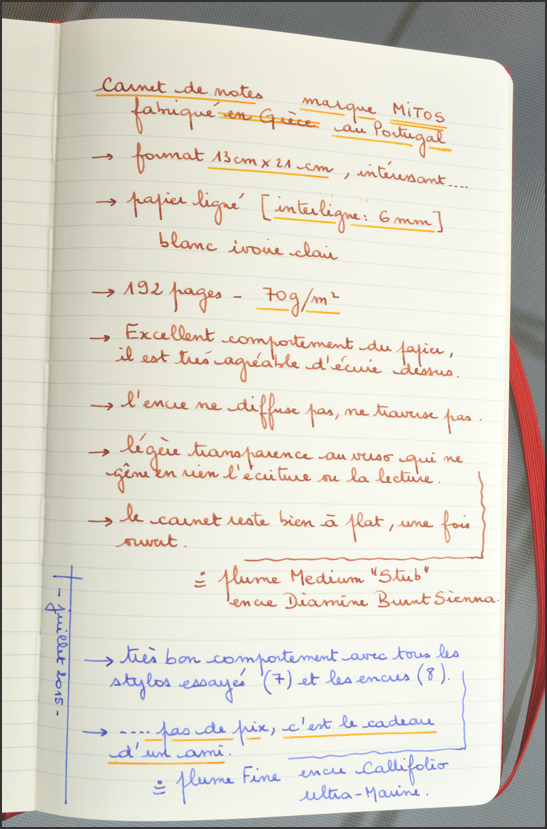 Carnet de notes marque MiTOS
fabriqué en Grèce au Portugal
→ format 13cm x 21 cm, intéressant....
→ papier ligné [interligne: 6mm]
blanc ivoire clair
→ 192 pages - 70g/m²
→ Excellent comportement du papier,
il est très agréable d'écrire dessus.
→ l'encre ne diffuse pas, ne traverse pas.
→ légère transparence au verso qui ne
gêne en rien l'écriture ou la lecture.
→ le carnet reste bien à plat, une fois
ouvert.
= plume Medium "Stub"
encre Diamine Burnt Sienna.
- juillet 2015 -
→ très bon comportement avec tous les
stylos essayés (7) et les encres (8).
→ .... pas de pix, c'est le cadeau
d'un ami.
= plume Fine encre Callifolio
ultra-Marine.